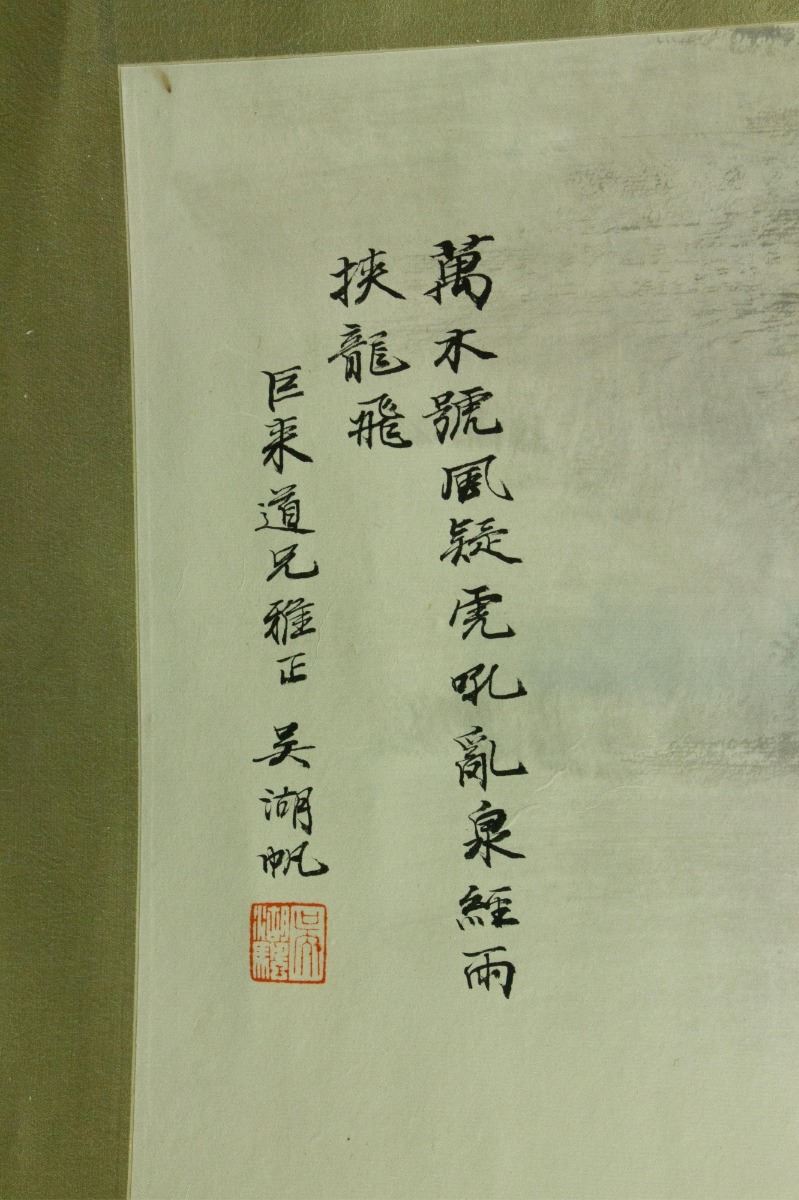 萬木號風疑虎吼亂泉經雨
挾龍飛
巨来道兄雅正 吴湖帆